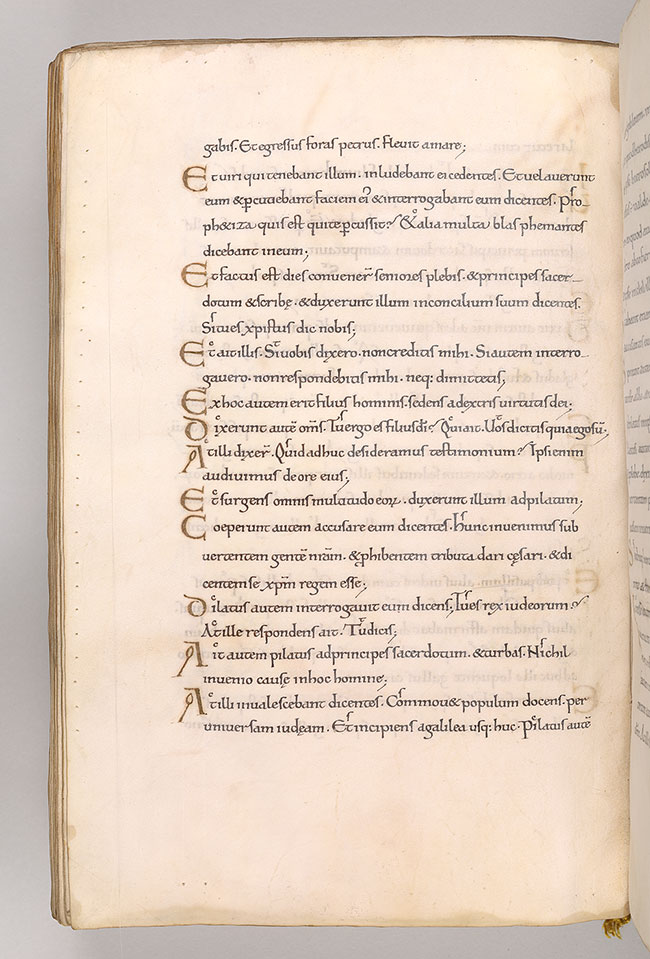 gabis. Et egressus foras petrus. flevit amare;
Et viri qui tenebant illum. inludebant ei cedentes. Et velaverunt
eum & p̱cutiebant faciem ei᷒ & interrogabant eum dicentes. Pro
ph&iza quis est qui te p̱cussit? & alia multa blasphemantes
dicebant in eum;
Et factus est dies convener̄ seniores plebis. & principes sacer-
dotum & scribę. & duxerunt illum in concilium suum dicentes.
Si tu es xpistus dic nobis;
Et ait illis. Si vobis dixero. non creditis mihi. Si autem interro-
gavero. non respondebitis mihi. neq: dimittetis;
Ex hoc autem erit filius hominis. sedens a dextris virtutis dei.
Dixerunt autē om̄s. Tu ergo es filius di? Qui ait. Vos dicitis quia ego sū;
At illi dixer̄. Quid adhuc desideramus testimonium? Ipsi enim
audivimus de ore eius;
Et surgens omnis multitudo eoꝝ. duxerunt illum ad pilatum;
Coeperunt autem accusare eum dicentes. Hunc invenimus sub
vertentem gentē nr̄am. & phibentem tributa dari cęsari. & di
centem se xpm̄ regem esse;
Pilatus autem interrogavit eum dicens; Tu es rex iudeorum?
At ille respondens ait. Tu dicis;
Ait autem pilatus ad principes sacerdotum. & turbas. Nichil
invenio causę in hoc homine;
At illi invalescebant dicentes. Commov& populum docens. per
universam iudęam. Et incipiens a galilea usq: huc. Pilatus autē